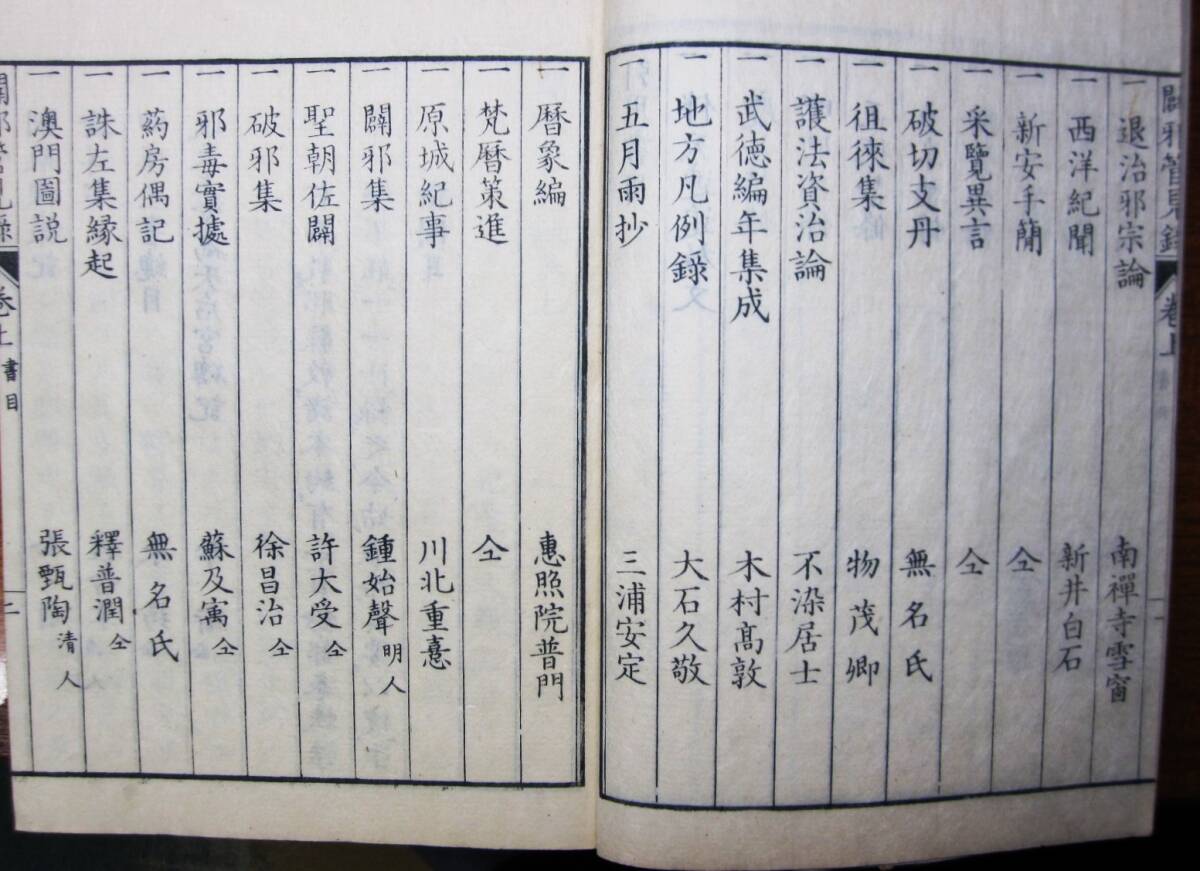 闢邪管見録 卷上
一 退治邪宗論 南禪寺雪窗
一 西洋紀聞 新井白石
一 新安手簡 仝
一 采覽異言 仝
一 破切支丹 無名氏
一 徂徠集 物茂卿
一 護法資治論 不染居士
一 武徳編年集成 木村高敦
一 地方凡例録 大石久敬
一 五月雨抄 三浦安定
一 曆象編 惠照院普門
一 梵曆策進 仝
一 原城紀事 川北重憙
一 闢邪集 鍾始聲 明人
一 聖朝佐闢 許大受 仝
一 破邪集 徐昌治 仝
一 邪毒實據 蘇及寓 仝
一 藥房偶記 無名氏
一 誅左集縁起 釋普潤 仝
一 澳門圖説 張甄陶 清人
卷上 書目 二